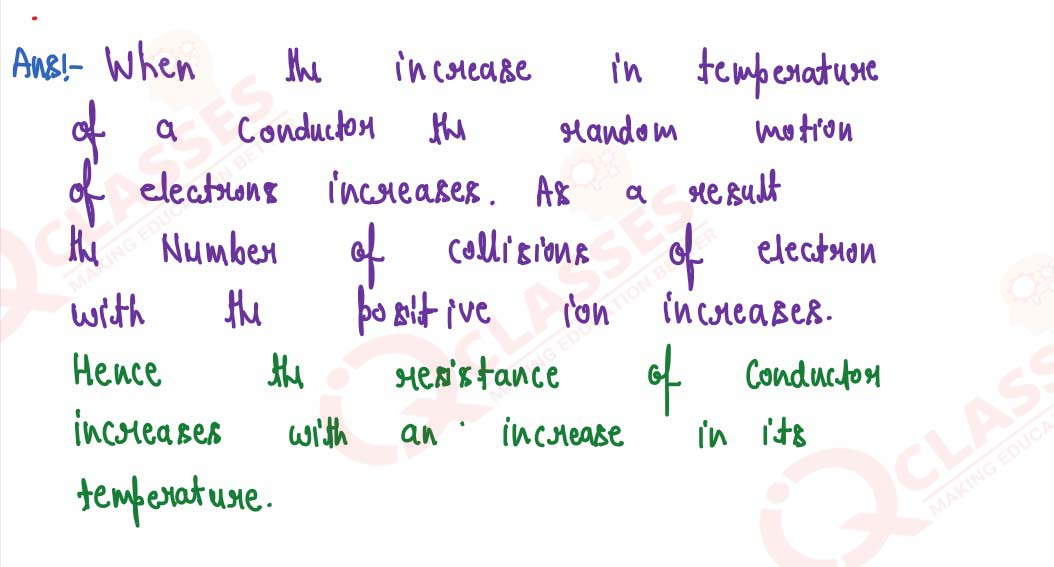 Ans:- When the increase in temperature
of a Conductor the random motion
of electrons increases. As a result
the Number of collisions of electron
with the positive ion increases.
Hence the resistance of Conductor
increases with an increase in its
temperature.
iQ CLASSES
MAKING EDUCATION BETTER
iQ CLASSES
MAKING EDUCATION BETTER
iQ CLASSES
MAKING EDUCA